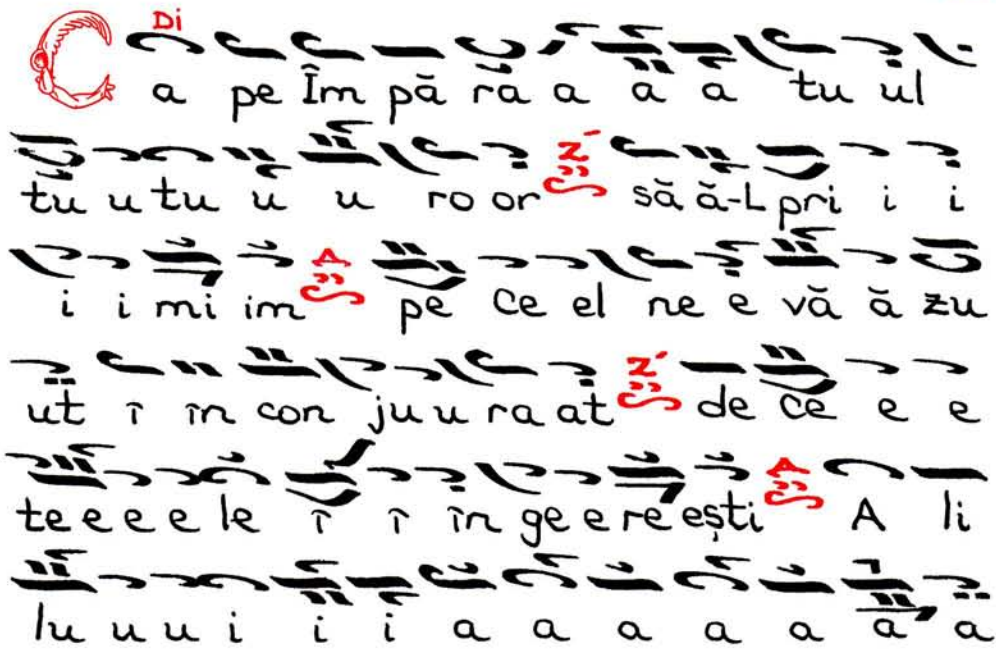 Di
C a pe Îm pă ră a ă ă tu ul
tu u tu u u ro or Z΄ să ă-L pri i i
i i mi im Δ pe ce el ne e vă ă zu
ut î în con ju u ra at Z΄ de ce e e
te e e e le î î în ge e re ești Δ A li
lu u u i i i a a a a a a a